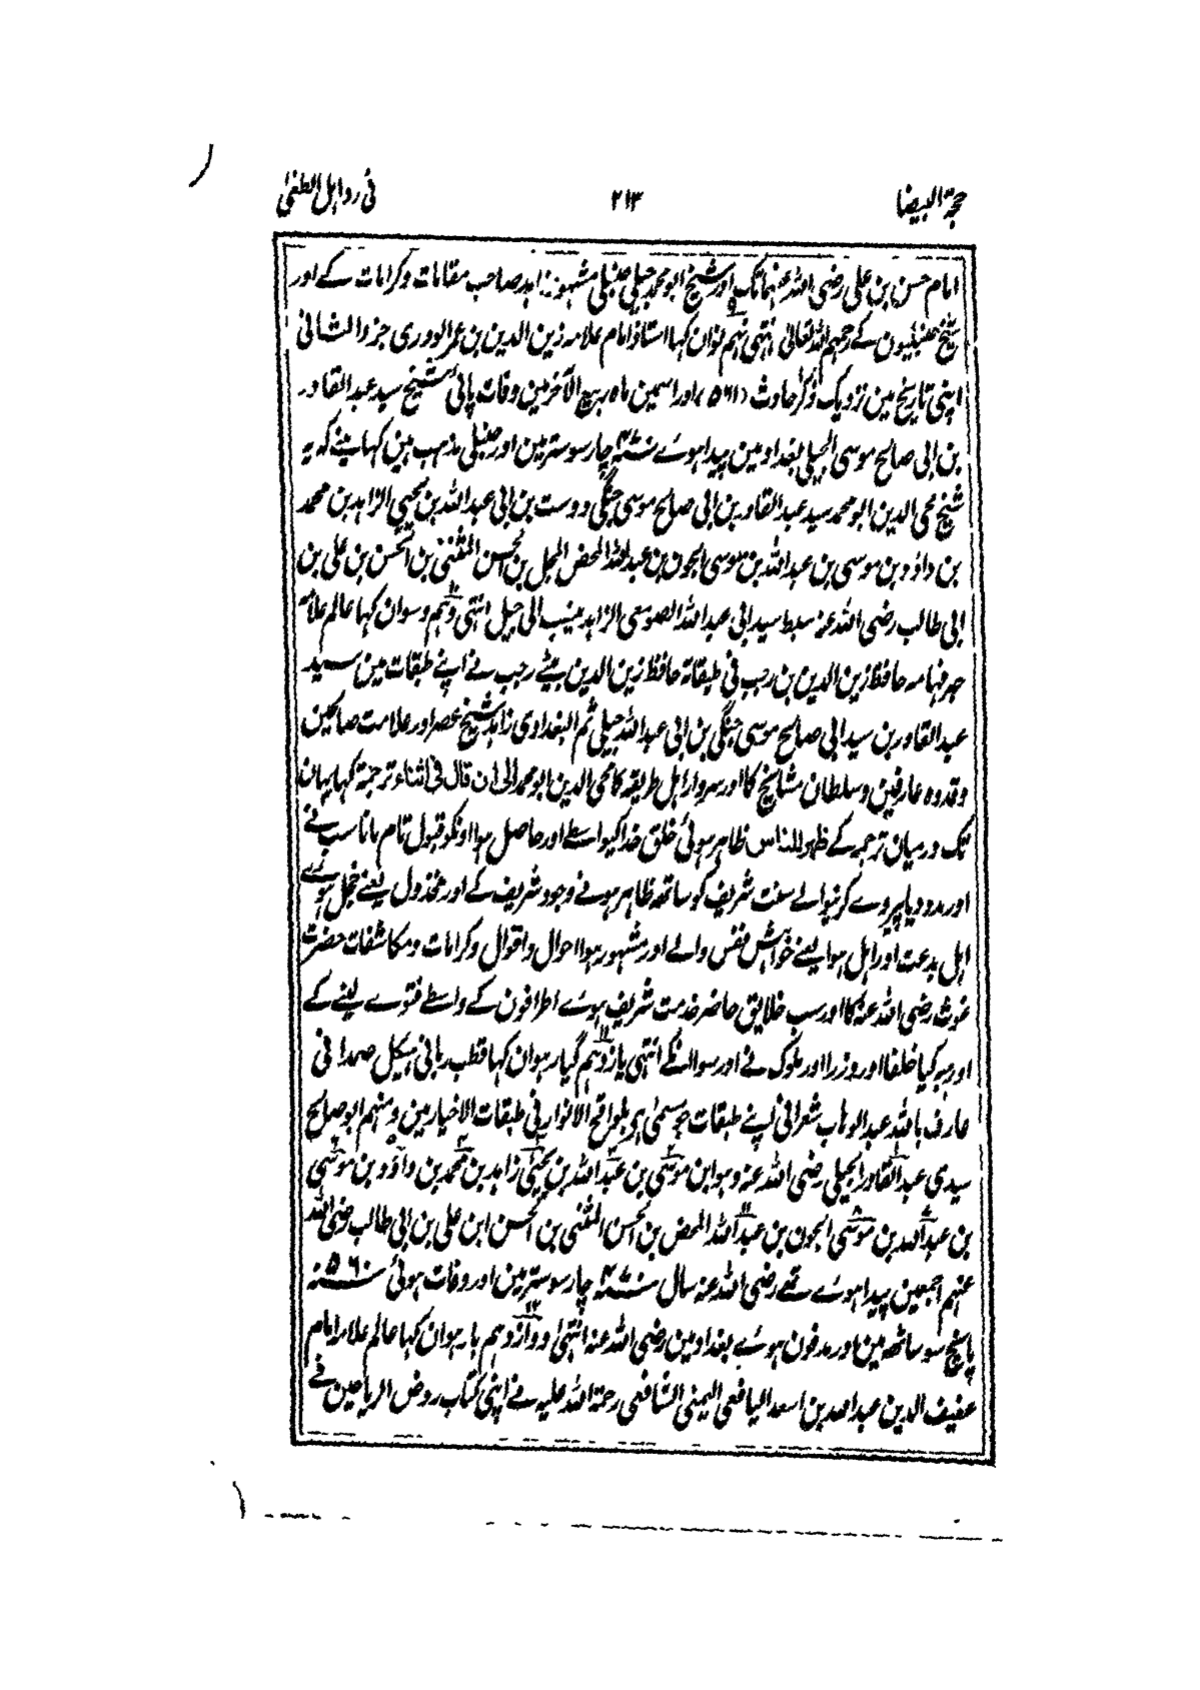 حجۃ البیضا ۲۱۳ فی رد اہل الطغیٰ
امام حسن بن علی رضی اللہ عنہما تک اور شیخ ابو محمد جیلی حنبلی مشہور زاہد صاحب مقامات و کرامات کے اور
شیخ حنبلیون کے رحمہم اللہ تعالیٰ انتہی نہم نوان کہا استاذ امام علامہ زین الدین بن عمر الوردی جزو الثانی
اپنی تاریخ مین نزدیک ذکر حادث (۵۶۱) اور اسمین ماہ ربیع الآخر مین وفات پائی الشیخ سید عبدالقادر
بن ابی صالح موسی الجیلی بغداد مین پیدا ہوے سنہ ۴۷۰ چار سو ستر مین اور حنبلی مذہب مین کہا مینے کہ یہ
شیخ محی الدین ابو محمد سید عبدالقادر بن ابی صالح موسی جنگی دوست بن ابی عبداللہ بن یحیی الزاہد بن محمد
بن داؤد بن موسی بن عبداللہ بن موسی الجون بن عبداللہ المحض المجل بن الحسن المثنی بن الحسن بن علی بن
ابی طالب رضی اللہ عنہ سبط سید ابی عبداللہ الصومعی الزاہد ینسب الی جیل انتہی دہم دسوان کہا عالم علامہ
حبر فہامہ حافظ زین الدین بن رجب فی طبقاتہ حافظ زین الدین بیٹے رجب نے اپنے طبقات مین سید
عبدالقادر بن سید ابی صالح موسی جنگی بن ابی عبداللہ جیلی ثم البغدادی زاہد شیخ عصر اور علامت صالحین
و قدوہ عارفین و سلطان مشایخ کا اور سردار اہل طریقہ کا محی الدین ابو محمد الی ان قال فی اثناء ترجمتہ کہا یہان
تک درمیان ترجمہ کے ظہر للناس ظاہر ہوئی خلق خدا کیواسطے اور حاصل ہوا اونکو قبول تام ماناسب نے
اور مدد دیا پیروے کرنیوالے سنت شریف کو ساتھہ ظاہر ہونے وجود شریف کے اور مخذول یعنے خجل ہوے
اہل بدعت اور اہل ہوا یعنے خواہش نفس والے اور مشہور ہوا احوال و اقوال و کرامات و مکاشفات حضرت
غوث رضی اللہ عنہ کا اور سب خلایق حاضر خدمت شریف ہوے اطرافون کے واسطے فتوے لینے کے
اور ہبہ کیا خلفا اور وزرا اور ملوک نے اور سوا انکے انتہی یازدہم گیارہوان کہا قطب ربانی ہیکل صمدانی
عارف باللہ عبدالوہاب شعرانی اپنے طبقات جو مسمیٰ ہی بلواقح الانوار فی طبقات الاخیار مین و منہم ابو صالح
سیدی عبدالقادر الجیلی رضی اللہ عنہ و ہو ابن موسی بن عبداللہ بن یحیی زاہد بن محمد بن داؤد بن موسی
بن عبداللہ بن موسی الجون بن عبداللہ المحض بن الحسن المثنی بن الحسن ابن علی بن ابی طالب رضی اللہ
عنہم اجمعین پیدا ہوے تھے رضی اللہ عنہ سال سنہ ۴۷۰ چار سو ستر مین اور وفات ہوئی سنہ ۵۶۰
پانچ سو ساٹھ مین اور مدفون ہوے بغداد مین رضی اللہ عنہ انتہی دوازدہم بارہوان کہا عالم علامہ امام
عفیف الدین عبداللہ بن اسعد الیافعی الیمنی الشافعی رحمۃ اللہ علیہ نے اپنی کتاب روض الریاحین فے